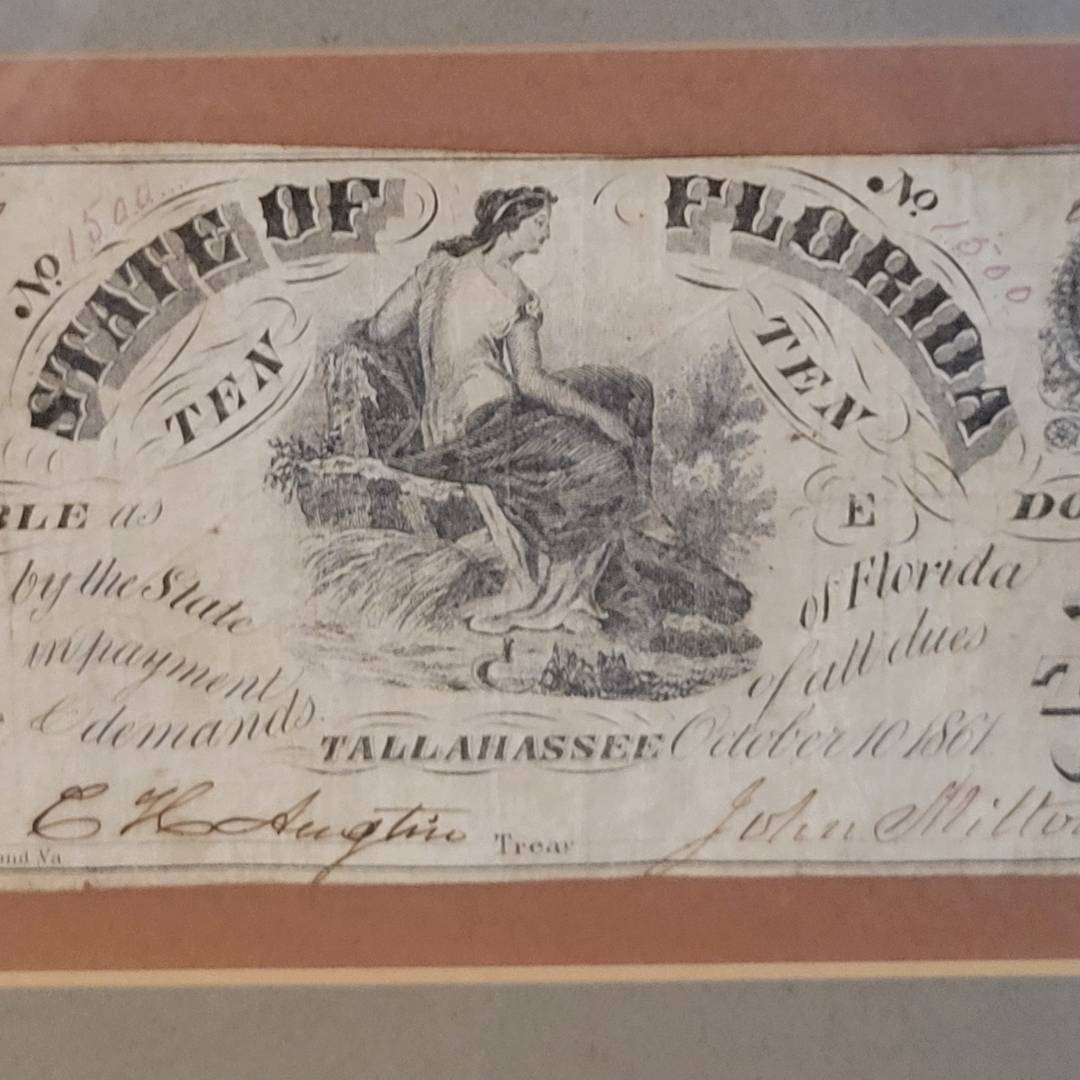 No 1500
No 1500
STATE OF FLORIDA
TEN
TEN
BLE as
E
DO
by the State
of Florida
in payment
of all dues
& demands.
TALLAHASSEE October 10 1861
C H Austin Treas John Milto
ond Va